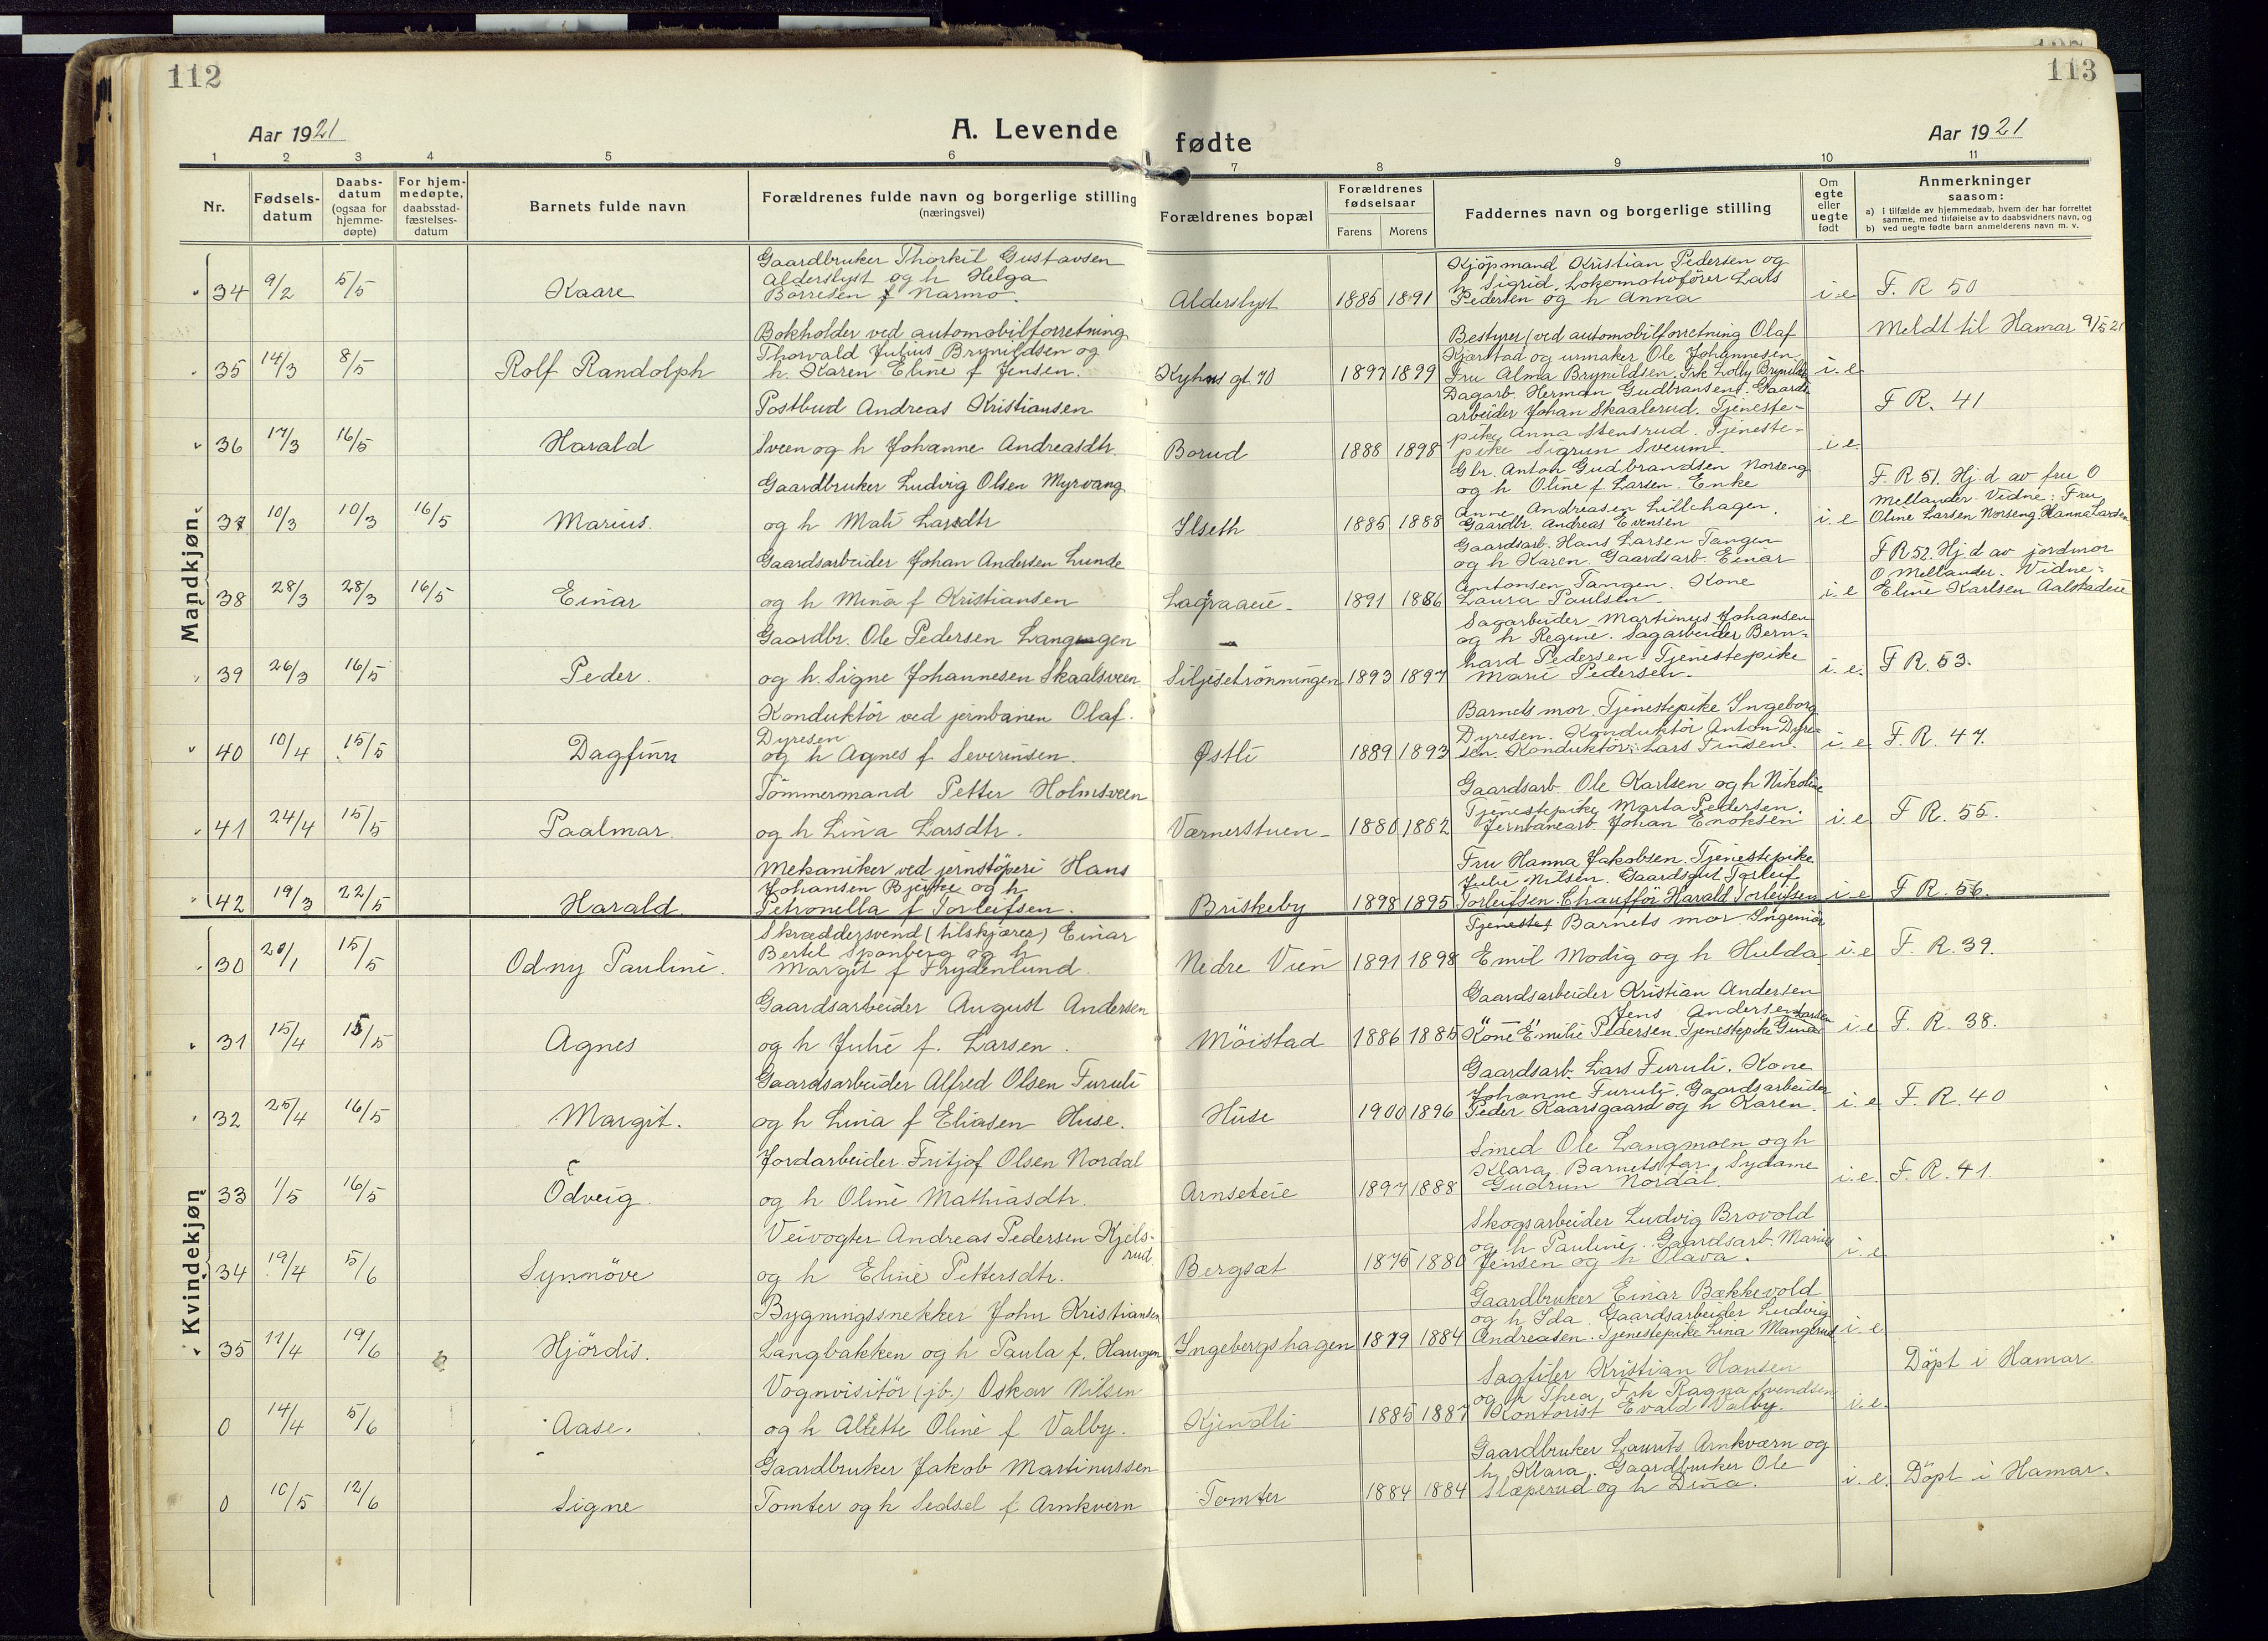 112
113
Aar 1921
A. Levende fødte
Aar 1921
1 2 3 4 5 6 7 8 9 10 11
Nr.
Fødsels-
datum
Daabs-
datum
(ogsaa for
hjemme-
døpte)
For hjem-
medøpte,
daabsstad-
fæstelses-
datum
Barnets fulde navn
Forældrenes fulde navn og borgerlige stilling
(næringsvei)
Forældrenes bopæl
Forældrenes
fødselsaar
Farens Morens
Faddernes navn og borgerlige stilling
Om
egte
eller
uegte
født
Anmerkninger
saasom:
a) i tilfælde av hjemmedaab, hvem der har forrettet
samme, med tilføielse av to daabsvidners navn, og
b) ved uegte fødte barn anmelderens navn m. v.
Mandkjøn
34 9/2 5/5 Kaare
Gaardbruker Thorkil Gustavsen
Alderslyst og h Helga
Börresen f Narmo.
Alderslyst 1885 1891
Kjöpmand Kristian Pedersen og
h Sigrid. Lokomotivförer Lars
Pedersen og h Anna
i.e F. R 50
35 14/3 8/5 Rolf Randolph
Bokholder ved automobilforretning
Thorvald Julius Brynildsen og
h. Karen Eline f Jensen.
Kyhns gt. 70 1897 1899
Bestyrer (ved automobilforretning Olaf
Kjærstad og urmaker Ole Johannesen
Fru Alma Brynildsen. Frk Lolly Brynilds
i.e
Meldt til Hamar 9/5 21
36 17/3 16/5 Harald
Postbud Andreas Kristiansen
Sveen og h Johanne Andreasdtr.
Borud 1888 1898
Dagarb. Herman Gudbransen. Gaards-
arbeider Johan Skaalerud. Tjeneste-
pike Anna Stensrud. Tjeneste-
pike Sigrun Sveum.
i.e F R. 41
37 10/3 10/3 16/5 Marius.
Gaardbruker Ludvig Olsen Myrvang
og h Mali Larsdtr
Ilseth 1885 1888
Gbr. Anton Gudbrandsen Norseng
og h Oline f. Larsen. Enke
Anne Andreasen Lillehagen.
Gaardbr. Andreas Evensen
i.e
F. R. 51. Hj. d av fru O
Mellander. Vidne: Fru
Oline Larsen Norseng. Hanna Larsen
38 28/3 28/3 16/5 Einar
Gaardsarbeider Johan Andersen Lunde
og h Mina f Kristiansen
Lageraaeie 1891 1886
Gaardsarb. Hans Larsen Tangen
og h Karen. Gaardsarb. Einar
Antonsen Tangen. Kone
Laura Paulsen
i.e
F R 52. Hj. d av jordmor
O Mellander. Vidne:
Eline Karlsen Aalstadeie
39 26/3 16/5 Peder.
Gaardbr. Ole Pedersen Langengen
og h. Signe Johannesen Skaalsveen
Siljesetrønningen 1893 1897
Sagarbeider Martinus Johansen
og h Regine. Sagarbeider Bern-
hard Pedersen. Tjenestepike
Marie Pedersen.
i.e. F R. 53.
40 10/4 15/5 Dagfinn
Konduktör ved jernbanen Olaf
Dyresen
og h Agnes f Severinsen.
Østli 1889 1893
Barnets mor. Tjenestepike Ingeborg
Dyresen. Konduktör Anton Dyre-
sen. Konduktör Lars Finsen.
i.e F. R. 47.
41 24/4 15/5 Paalmar.
Tömmermand Petter Holmsveen
og h Lina Larsdtr.
Værnerstuen 1880 1882
Gaardsarb. Ole Karlsen og h Nikoline
Tjenestepike Marta Pedersen.
Jernbanearb. Johan Enoksen
i.e F R. 55.
42 19/3 22/5 Harald.
Mekaniker ved jernstöperi Hans
Johansen Bjerke og h
Petronella f Torleifsen.
Briskeby 1898 1895
Fru Hanna Jakobsen. Tjenestepike
Julie Nilsen. Gaardsgut Torleif
Torleifsen. Chaufför Harald Torleifsen
i.e F R. 56.
Kvindekjøn
30 20/1 15/5 Odny Pauline.
Skræddersvend (tilskjærer) Einar
Bertel Spanberg og h
Margit f Frydenlund.
Nedre Vien 1891 1898
Tjenestes Barnets mor Ingeniör
Emil Modig og h Hulda
i.e F. R. 39.
31 15/4 15/5 Agnes
Gaardsarbeider August Andersen
og h Julie f. Larsen.
Möistad 1886 1885
Gaardsarbeider Kristian Andersen
" " Jens Andersen
Kone Emilie Pedersen. Tjenestepike Gina Larsen
i.e F. R. 38.
32 25/4 16/5 Margit.
Gaardsarbeider Alfred Olsen Furuli
og h Lina f Eliasen Huse.
Huse 1900 1896
Gaardsarb. Lars Furuli. Kone
Johanne Furuli. Gaardsarbeider
Peder Kaarsgaard og h Karen.
i.e F. R. 40
33 1/5 16/5 Odveig.
Jordarbeider Fritjof Olsen Nordal
og h Oline Mathiasdtr.
Arnseteie 1897 1888
Smed Ole Langmoen og h
Klara. Barnets far. Sydame
Gudrun Nordal.
i.e. F. R. 41.
34 19/4 5/6 Synnöve
Veivogter Andreas Pedersen Kjels-
rud
og h Eline Pettersdtr.
Bergsæt 1875 1880
Skogsarbeider Ludvig Brovold
og h Pauline. Gaardsarb. Marius
Jensen og h Olava.
i.e
35 11/4 19/6 Hjördis.
Bygningssnekker John Kristiansen
Langbakken og h Paula f. Haugen
Ingebergshagen 1879 1884
Gaardbruker Einar Bækkevold
og h Ida. Gaardsarbeider Ludvig
Andreasen. Tjenestepike Lina Mangerud
i.e
0 14/4 5/6 Aase.
Vognvisitör (jb.) Oskar Nilsen
og h Alette Oline f Valby.
Kjendli 1885 1887
Sagfiler Kristian Hansen
og h Thea. Frk Ragna Svendsen
Kontorist Evald Valby.
i.e. Döpt i Hamar.
0 10/5 12/6 Signe
Gaardbruker Jakob Martinussen
Tomter og h Sedsel f Arnkvern
Tomter 1884 1884
Gaardbruker Laurits Arnkværn og
h Klara. Gaardbruker Ole
Slæperud og h Dina.
i. e. Döpt i Hamar.